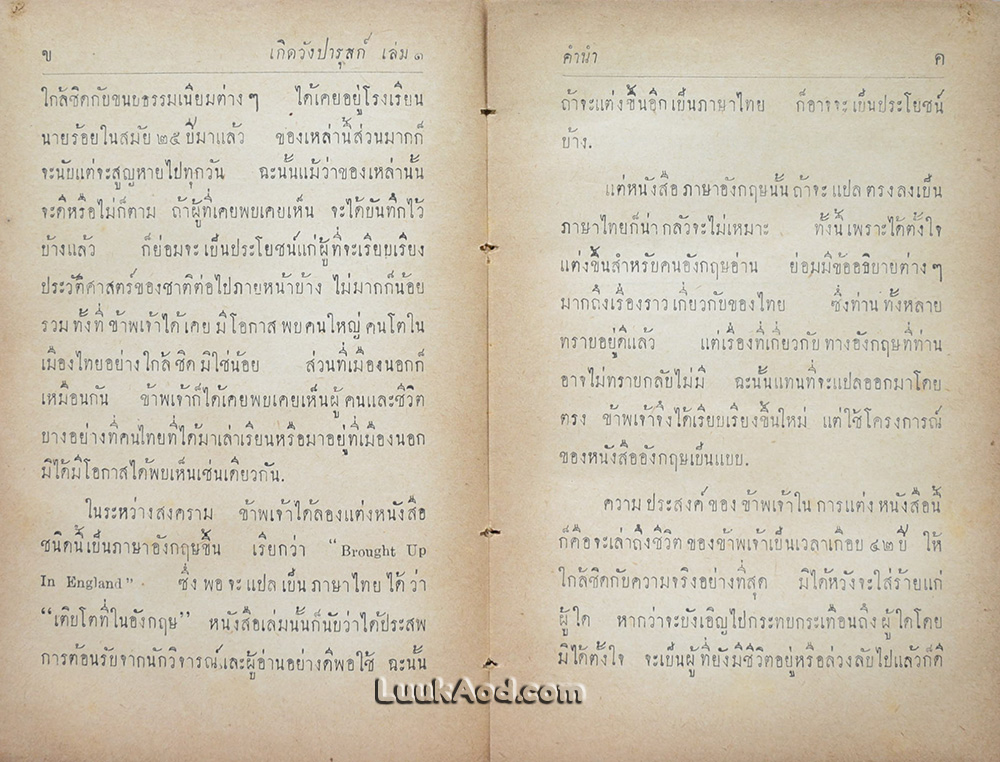 ข เกิดวังปารุสก์ เล่ม ๑
ใกล้ชิดกับขนบธรรมเนียมต่าง ๆ ได้เคยอยู่โรงเรียน
นายร้อยในสมัย ๒๕ ปีมาแล้ว ของเหล่านี้ส่วนมากก็
จะนับแต่จะสูญหายไปทุกวัน ฉะนั้นแม้ว่าของเหล่านั้น
จะดีหรือไม่ก็ตาม ถ้าผู้ที่เคยพบเคยเห็น จะได้บันทึกไว้
บ้างแล้ว ก็ย่อมจะเป็นประโยชน์แก่ผู้ที่จะเรียบเรียง
ประวัติศาสตร์ของชาติต่อไปภายหน้าบ้าง ไม่มากก็น้อย
รวมทั้งที่ข้าพเจ้าได้เคยมีโอกาสพบคนใหญ่คนโตใน
เมืองไทยอย่างใกล้ชิดมิใช่น้อย ส่วนที่เมืองนอกก็
เหมือนกัน ข้าพเจ้าก็ได้เคยพบเคยเห็นผู้คนและชีวิต
บางอย่างที่คนไทยที่ได้มาเล่าเรียนหรือมาอยู่ที่เมืองนอก
มิได้มีโอกาสได้พบเห็นเช่นเดียวกัน.
ในระหว่างสงคราม ข้าพเจ้าได้ลองแต่งหนังสือ
ชนิดนี้เป็นภาษาอังกฤษขึ้น เรียกว่า “Brought Up
In England” ซึ่งพอจะแปลเป็นภาษาไทยได้ว่า
“เติบโตที่ในอังกฤษ” หนังสือเล่มนั้นก็นับว่าได้ประสพ
การต้อนรับจากนักวิจารณ์และผู้อ่านอย่างดีพอใช้ ฉะนั้น
คำนำ ค
ถ้าจะแต่งขึ้นอีกเป็นภาษาไทย ก็อาจจะเป็นประโยชน์
บ้าง.
แต่หนังสือภาษาอังกฤษนั้น ถ้าจะแปลตรงลงเป็น
ภาษาไทยก็น่ากลัวจะไม่เหมาะ ทั้งนี้เพราะได้ตั้งใจ
แต่งขึ้นสำหรับคนอังกฤษอ่าน ย่อมมีข้ออธิบายต่าง ๆ
มากถึงเรื่องราวเกี่ยวกับของไทย ซึ่งท่านทั้งหลาย
ทราบอยู่ดีแล้ว แต่เรื่องที่เกี่ยวกับทางอังกฤษที่ท่าน
อาจไม่ทราบกลับไม่มี ฉะนั้นแทนที่จะแปลออกมาโดย
ตรง ข้าพเจ้าจึงได้เรียบเรียงขึ้นใหม่ แต่ใช้โครงการณ์
ของหนังสืออังกฤษเป็นแบบ.
ความประสงค์ของข้าพเจ้าในการแต่งหนังสือนี้
ก็คือจะเล่าถึงชีวิตของข้าพเจ้าเป็นเวลาเกือบ ๔๒ ปี ให้
ใกล้ชิดกับความจริงอย่างที่สุด มิได้หวังจะใส่ร้ายแก่
ผู้ใด หากว่าจะบังเอิญไปกระทบกระเทือนถึงผู้ใดโดย
มิได้ตั้งใจ จะเป็นผู้ที่ยังมีชีวิตอยู่หรือล่วงลับไปแล้วก็ดี
LuukAod.com